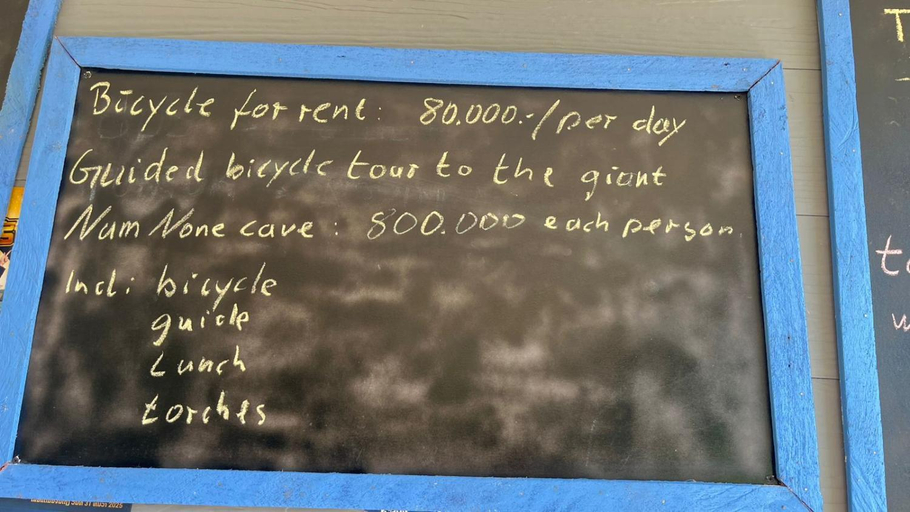 Bicycle for rent: 80.000.-/per day
Guided bicycle tour to the giant
Nam None cave: 800.000 each person.
Incl: bicycle
guide
Lunch
torches